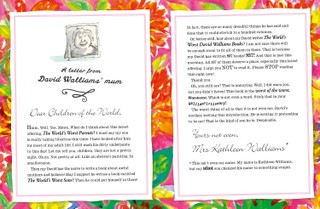 A letter from
David Walliams' mum
Dear Children of the World,
How. Will. You. Mean. When do I think about this latest
offering, The World's Worst Parents? I must say my son
is really taking liberties this time. I have looked after him
for most of my adult life. I still wash his dirty underpants
to this day! Let me tell you, children, they are not a pretty
sight. Often. Not pretty at all. Like an abstract painting. In
Then my David has the nerve to write a book about awful
mothers and fathers! May I suggest he writes a book entitled
The World's Worst Sons? Then he could put himself in there!
In fact, there are so many dreadful things he has said and
done that it could stretch to a hundred volumes.
Or, better still, how about my David writes The World's
Worst David Walliams Books? I am not sure there will
be enough room to fit all of them in there. That is because
my David has written SO many! NOT, and that is just this
morning. All of them deserve a place, especially this latest
offering. I urge you NOT to read it. Please STOP reading
this right now!
Thank you.
Oh, you still are? That is annoying. Well, I did warn you,
but you didn't listen! This book is the worst of the worst.
Worstest. Which is not even a word. Surely that is how
The worst thing of all is that it is not even my David's
mother writing this introduction. He is writing it pretending
to be me! That is the kind of son he is. Despicable.
Yours not ever,
Mrs Kathleen Walliams*
* This isn't even my name. My name is Kathleen Williams,
but my son changed his name to something stupid.